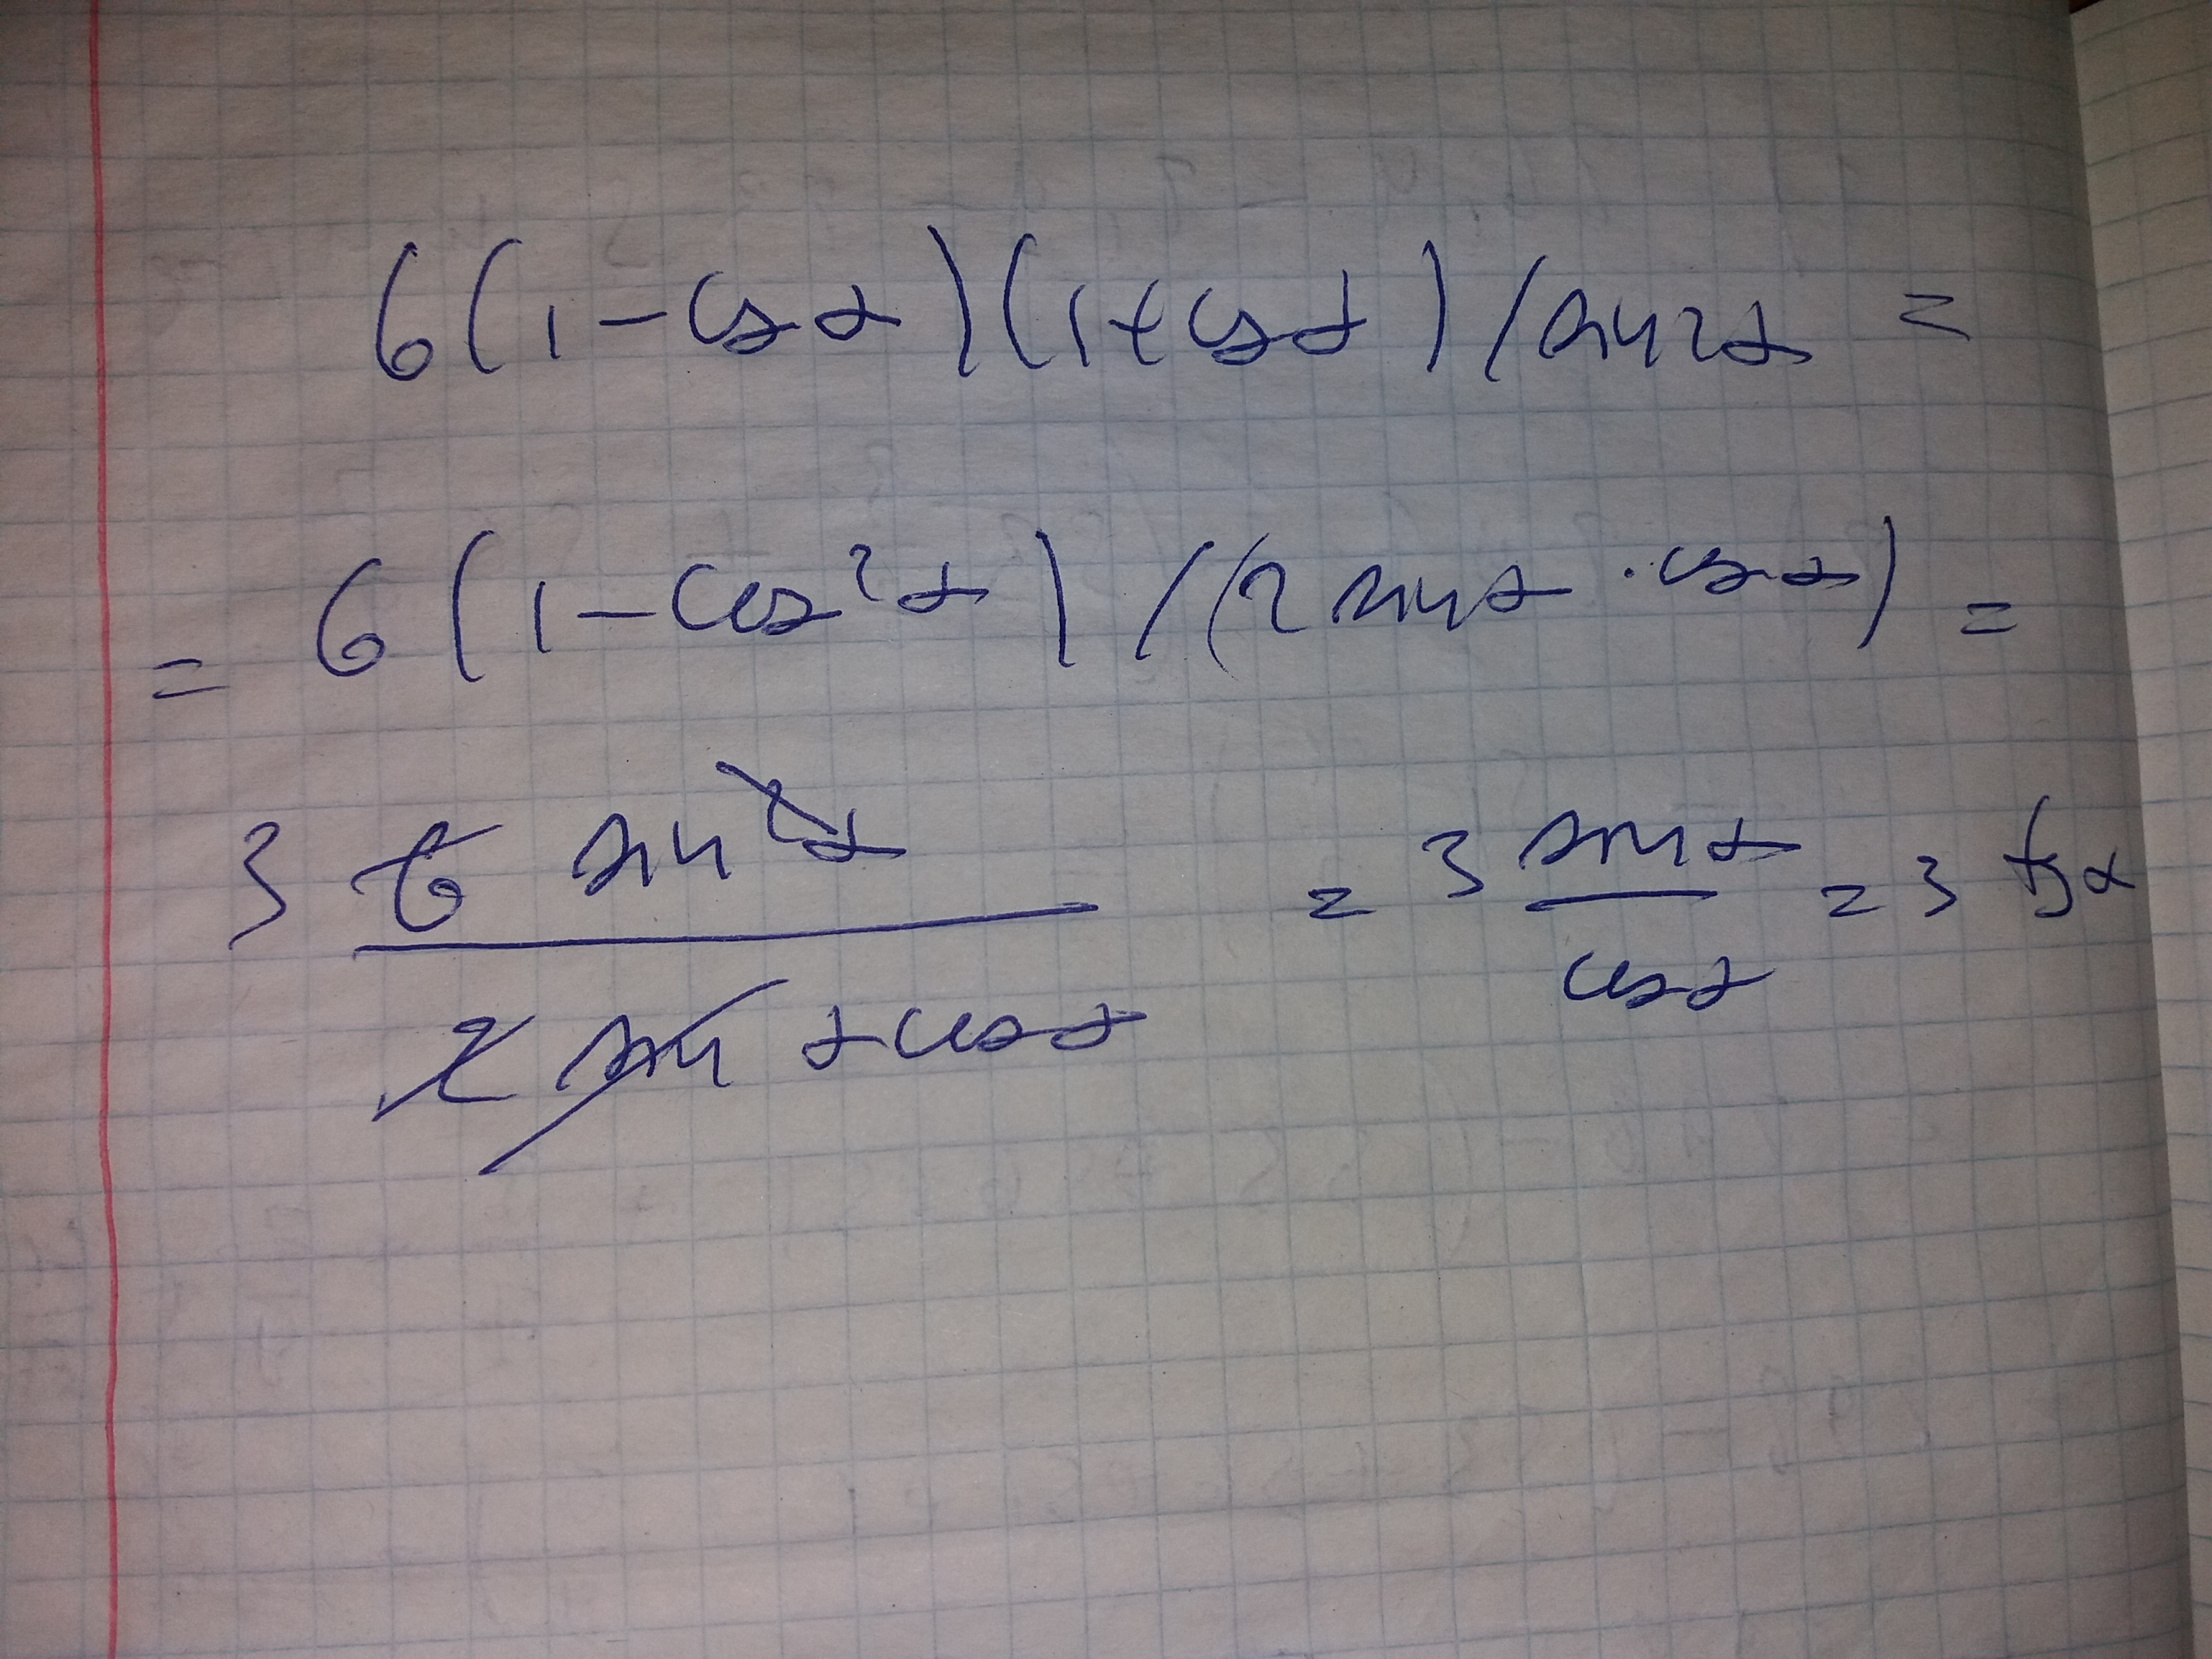 6(1-cosα)(1+cosα)/sin2α =
= 6(1-cos²α)/(2sinα·cosα) =
3 6 sin²α / 2 sinα cosα = 3 sinα / cosα = 3 tgα